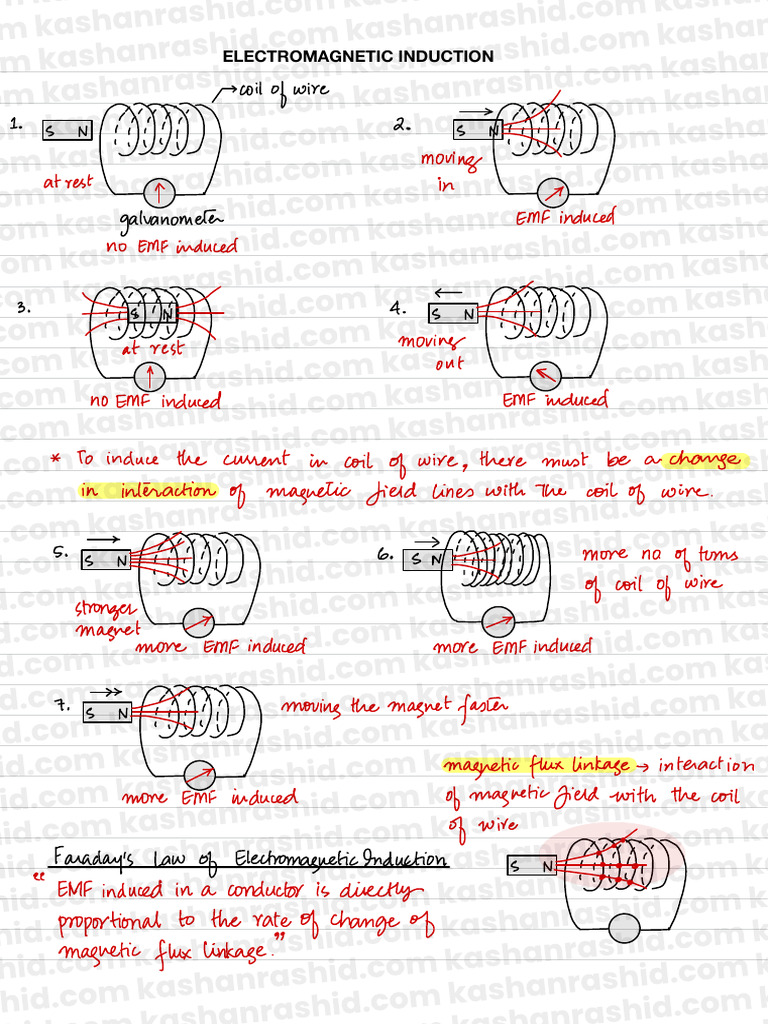 ELECTROMAGNETIC INDUCTION
coil of wire
1.
S N
at rest
galvanometer
no EMF induced
2.
S N
moving
in
EMF induced
3.
S N
at rest
no EMF induced
4.
S N
moving
out
EMF induced
* To induce the current in coil of wire, there must be a change
in interaction of magnetic field lines with the coil of wire.
5.
S N
stronger
magnet
more EMF induced
6.
S N
more no of turns
of coil of wire
more EMF induced
7.
S N
moving the magnet faster
more EMF induced
magnetic flux linkage → interaction
of magnetic field with the coil
of wire
S N
Faraday's Law of Electromagnetic Induction
"EMF induced in a conductor is directly
proportional to the rate of change of
magnetic flux linkage."
kashanrashid.com